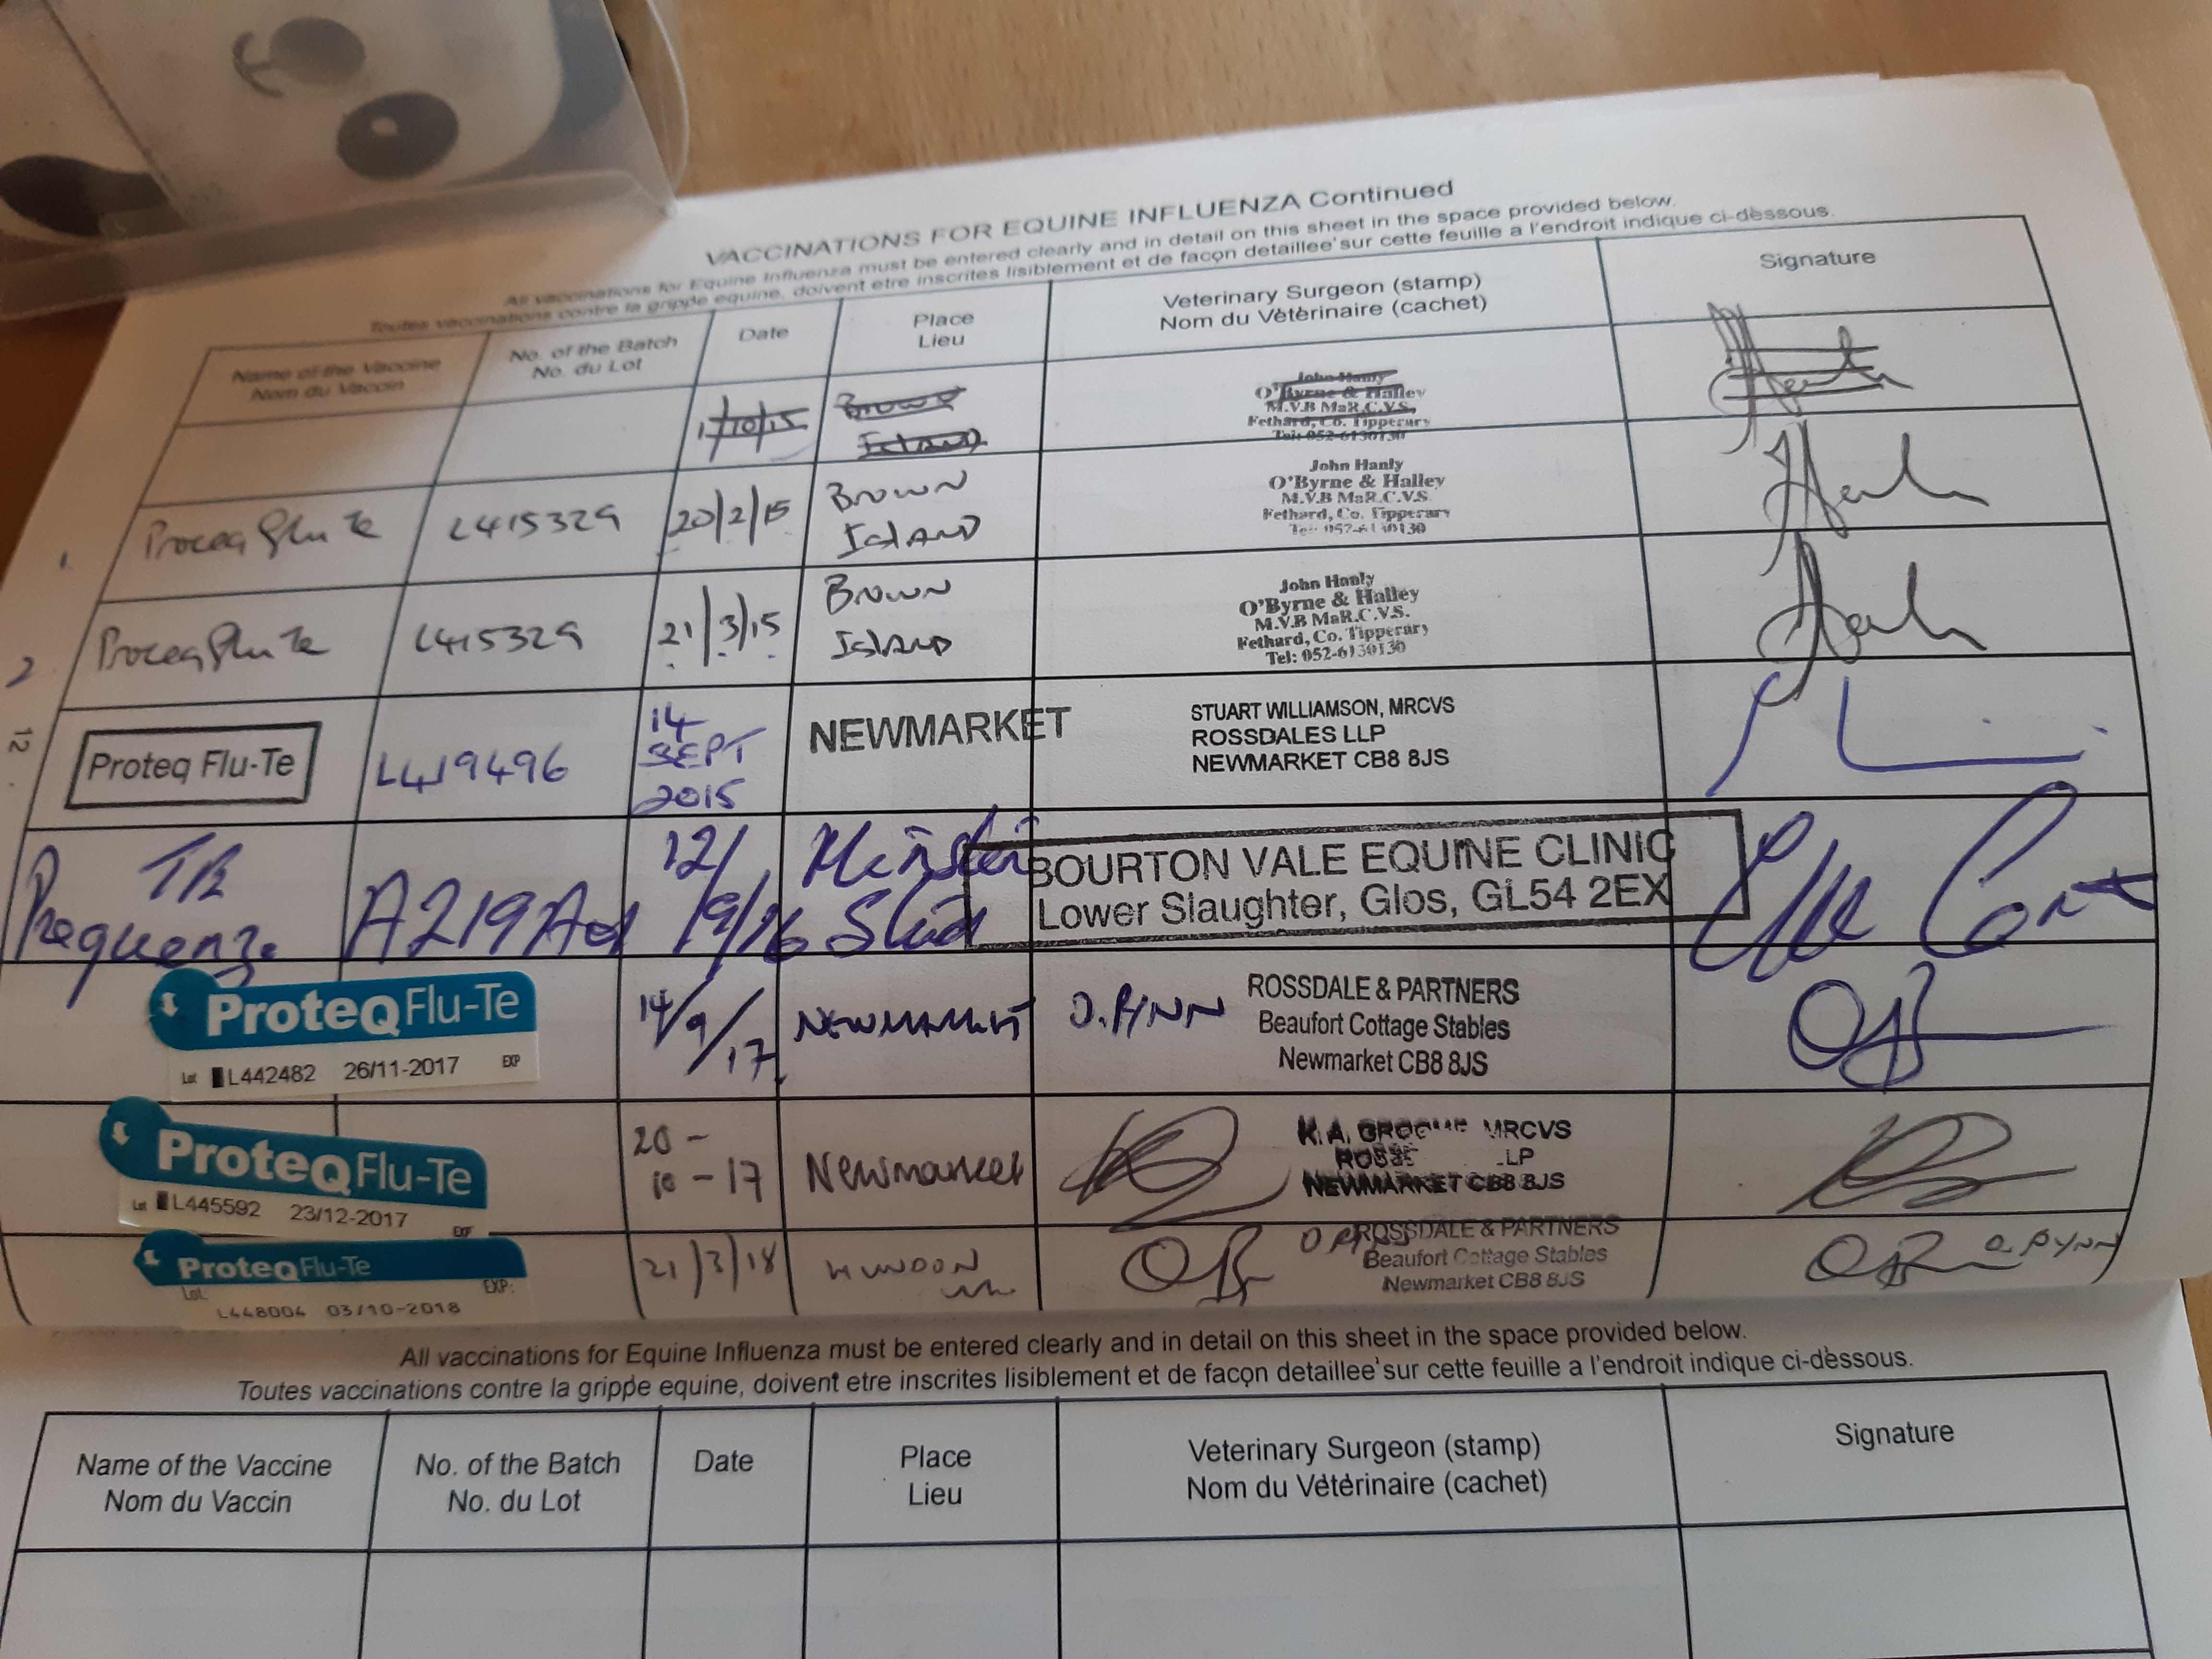 VACCINATIONS FOR EQUINE INFLUENZA Continued
All vaccinations for Equine Influenza must be entered clearly and in detail on this sheet in the space provided below.
Toutes vaccinations contre la grippe equine, doivent etre inscrites lisiblement et de façon detaillee sur cette feuille a l'endroit indique ci-dèssous.
Name of the Vaccine
Nom du Vaccin
No. of the Batch
No. du Lot
Date
Place
Lieu
Veterinary Surgeon (stamp)
Nom du Vétérinaire (cachet)
Signature
1/10/15
Brown
Island
John Hanly
O'Byrne & Halley
M.V.B MaR.C.V.S.
Fethard, Co. Tipperary
Tel: 052-6130130
1.
Proceq Flu Te
L415329
20/2/15
Brown
Island
John Hanly
O'Byrne & Halley
M.V.B MaR.C.V.S.
Fethard, Co. Tipperary
Tel: 052-6130130
2
Proceq Flu Te
L415329
21/3/15
Brown
Island
John Hanly
O'Byrne & Halley
M.V.B MaR.C.V.S.
Fethard, Co. Tipperary
Tel: 052-6130130
12
Proteq Flu-Te
L419496
14
SEPT
2015
NEWMARKET
STUART WILLIAMSON, MRCVS
ROSSDALES LLP
NEWMARKET CB8 8JS
Prequenza
12/
9/16
Stud
BOURTON VALE EQUINE CLINIC
Lower Slaughter, Glos, GL54 2EX
ProteqFlu-Te
Lot L442482 26/11-2017 EXP
14/9/17
NEWMARKET
O. PYNN
ROSSDALE & PARTNERS
Beaufort Cottage Stables
Newmarket CB8 8JS
ProteqFlu-Te
Lot L445592 23/12-2017 EXP
20-
10-17
Newmarket
K.A. MRCVS
LLP
NEWMARKET CB8 8JS
ProteqFlu-Te
Lot. EXP:
L448004 03/10-2018
21/3/18
HUNDON
ROSSDALE & PARTNERS
Beaufort Cottage Stables
Newmarket CB8 8JS
O. PYNN
All vaccinations for Equine Influenza must be entered clearly and in detail on this sheet in the space provided below.
Toutes vaccinations contre la grippe equine, doivent etre inscrites lisiblement et de façon detaillee sur cette feuille a l'endroit indique ci-dèssous.
Name of the Vaccine
Nom du Vaccin
No. of the Batch
No. du Lot
Date
Place
Lieu
Veterinary Surgeon (stamp)
Nom du Vétérinaire (cachet)
Signature